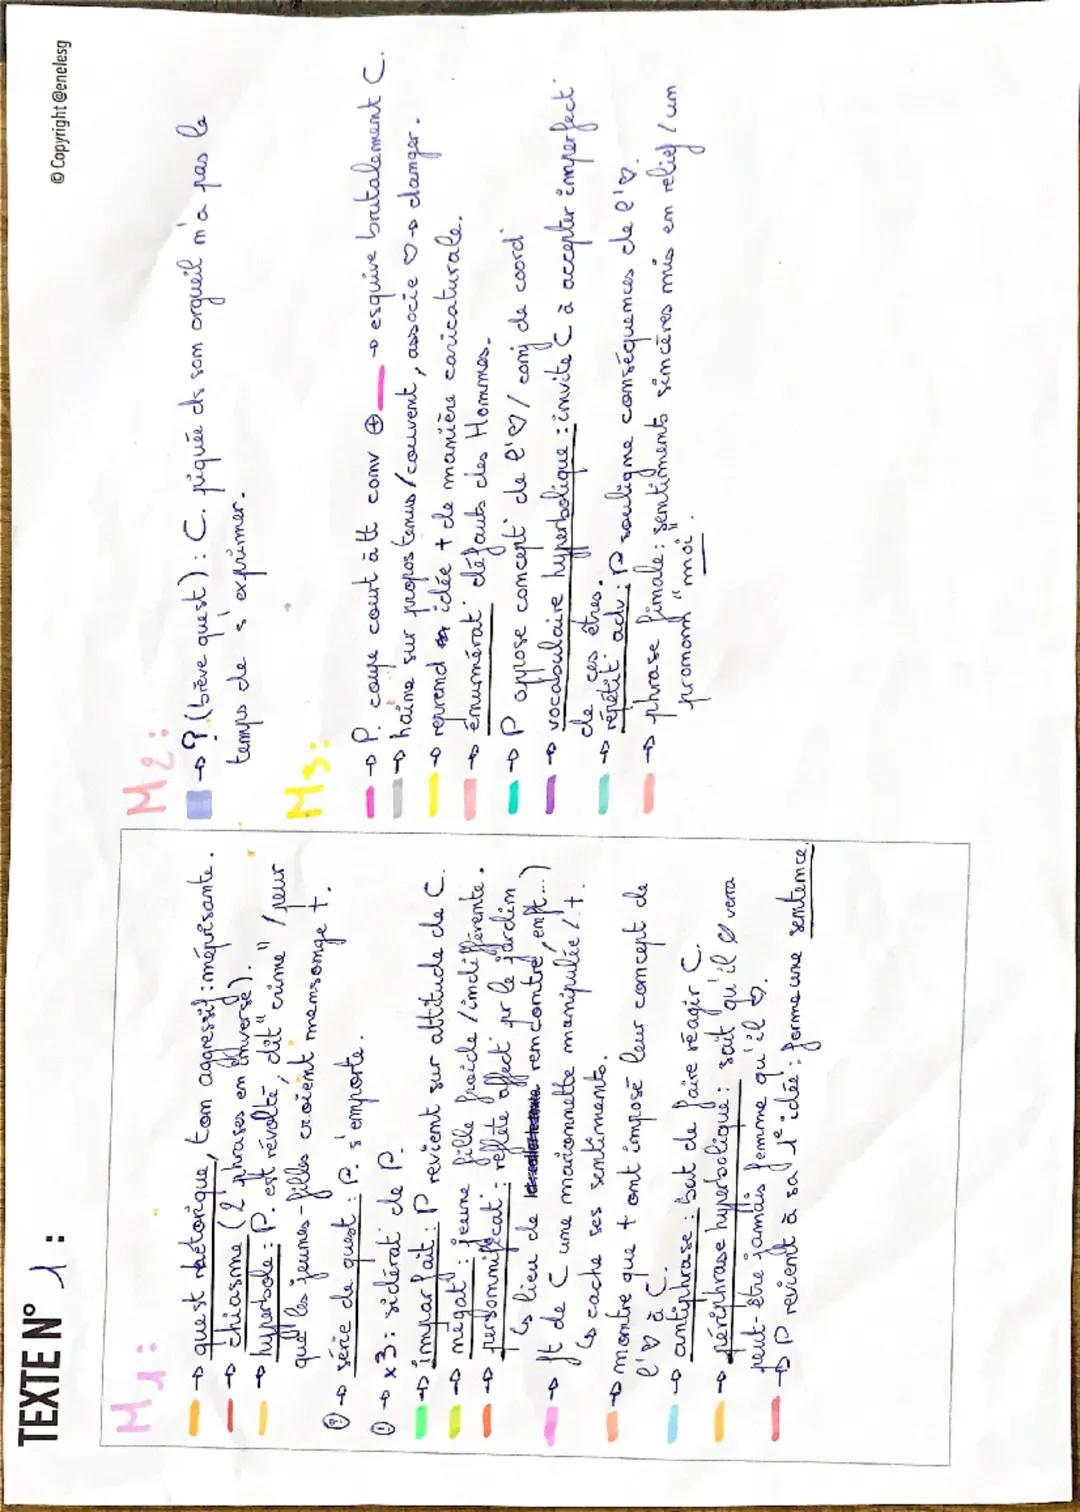 © Copyright @enelesg
TEXTE N° 1 :
M1 :
→ quest rhétorique, ton aggressif : méprisante.
→ chiasme (2 phrases en inverse).
→ hyperbole : P. est révolté, dit "crime" / peur
que les jeunes-filles croient mensonge +.
? → série de quest : P. s'emporte.
! → x3 : sidérat° de P.
→ imparfait : P revient sur attitude de C.
→ négat° : jeune fille froide / indifférente.
→ personnificat° : reflète affect° pr le jardin
↳ lieu de rencontre, empt...)
→ ft de C une marionnette manipulée / +.
↳ cache ses sentiments.
→ montre que + ont imposé leur concept de
l'♡ à C.
→ antiphrase : but de faire réagir C.
→ périphrase hyperbolique : sait qu'il ∅ verra
peut-être jamais femme qu'il ♡.
→ P revient à sa 1e idée : forme une sentence.
M2 :
→ ? (brève quest) : C. piquée ds son orgueil n'a pas le
temps de s'exprimer.
M3 :
→ P. coupe court à tt conv ⊕ → esquive brutalement C.
→ haine sur propos tenus / couvent, associe ♡ → danger.
→ reprend idée + de manière caricaturale.
→ énumérat° défauts des Hommes.
→ P oppose concept° de l'♡ / conj de coord°
→ vocabulaire hyperbolique : invite C à accepter imperfect°
de ces êtres.
→ répétit° adv : P souligne conséquences de l'♡.
→ phrase finale : sentiments sincères mis en relief / un
pronom "moi".